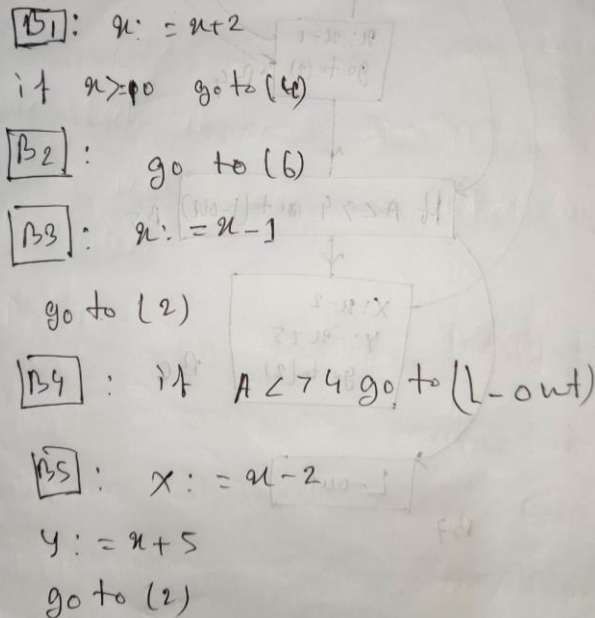 B1: x: = x+2
if x>=0 go to (4)
B2: go to (6)
B3: x: = x-1
go to (2)
B4: if A<>4 go to (L-out)
B5: x: = x-2
y: = x+5
go to (2)